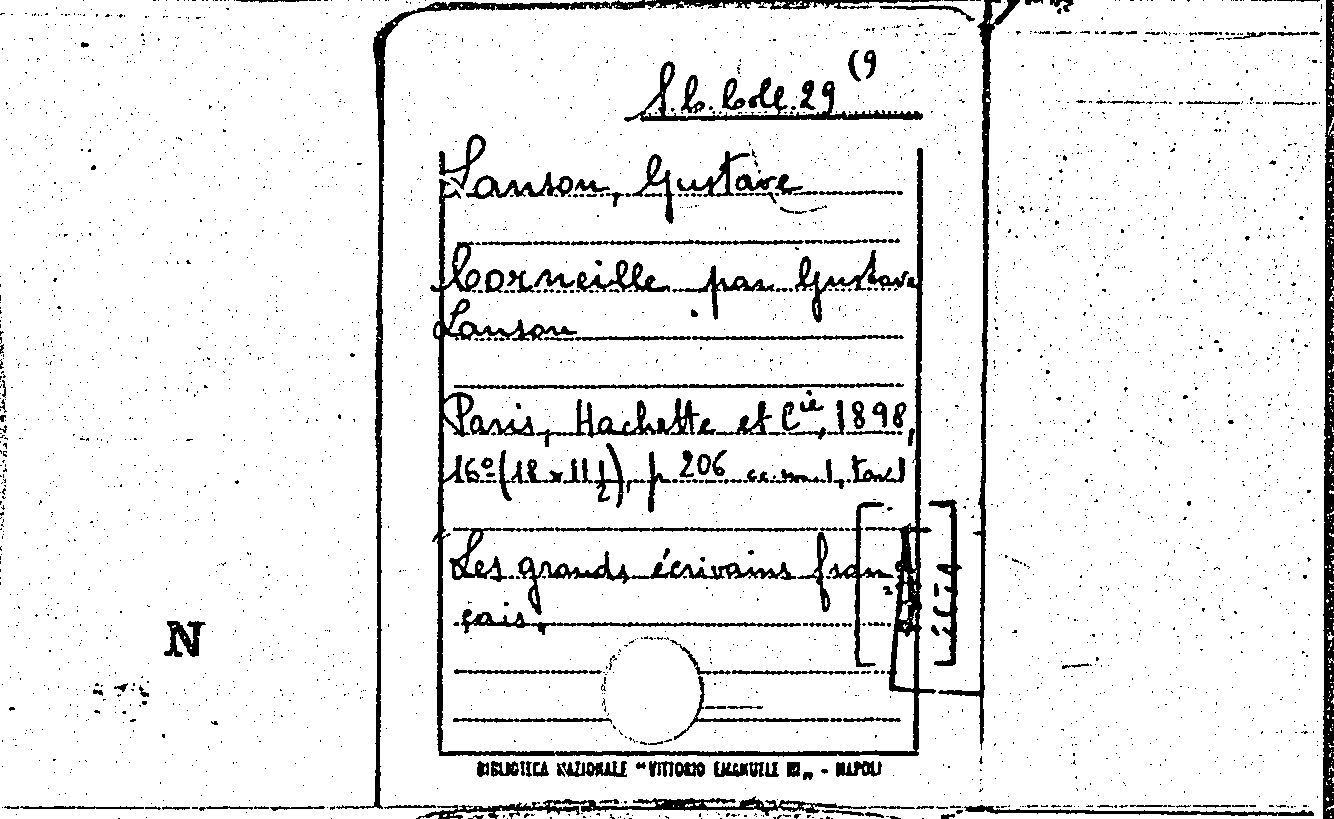 S. b. Coll. 29 (9
Lanson, Gustave
Corneille par Gustave
Lanson
Paris, Hachette et Cie, 1898,
16º (18 x 11 1/2), p. 206 cc. nn. 1, tav. 1
Les grands écrivains fran-
çais.
N
BIBLIOTECA NAZIONALE "VITTORIO EMANUELE III" - NAPOLI